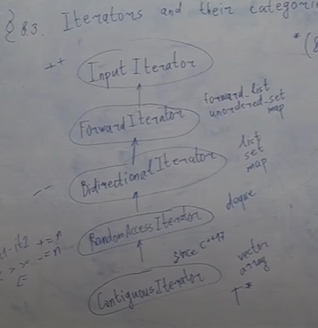 §8.3. Iterators and their categori
++
Input Iterator
ForwardIterator
forward_list
unordered_set
map
BidirectionalIterator
list
set
map
--
RandomAccessIterator
deque
it1-it2 += n
< > >= -= n
[]
since C++17
ContiguousIterator
vector
array
T*